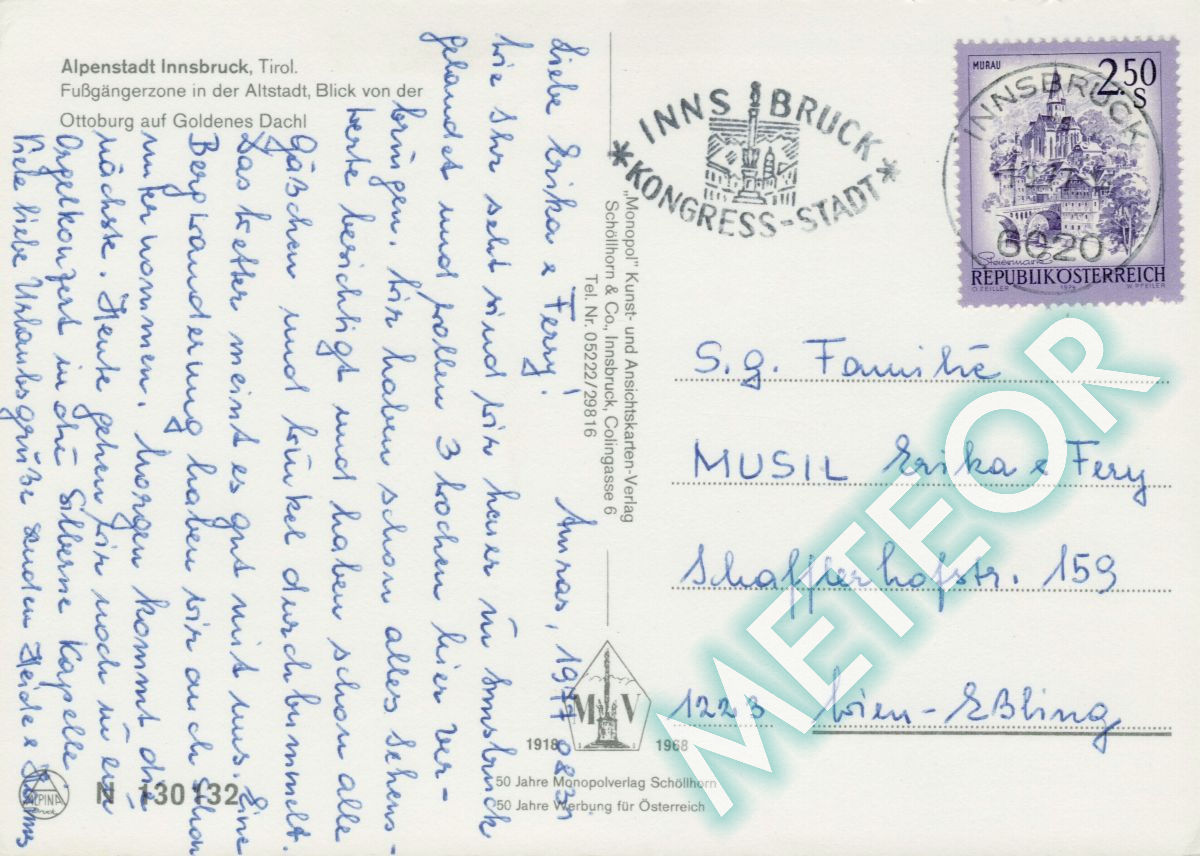 Alpenstadt Innsbruck, Tirol.
Fußgängerzone in der Altstadt, Blick von der
Ottoburg auf Goldenes Dachl
Amras, 1977 08 31
Liebe Erika & Ferry!
Wie Ihr seht sind wir heuer in Innsbruck
gelandet und wollen 3 Wochen hier ver-
bringen. Wir haben schon alles Sehens-
werte besichtigt und haben schon alle
Gäßchen und Winkel durchbummelt.
Das Wetter meint es gut mit uns. Eine
Bergwanderung haben wir auch schon
unternommen. Morgen kommt die
nächste. Heute gehen wir noch in ein
Orgelkonzert in die Silberne Kapelle
Viele liebe Urlaubsgrüße senden Heide &
INNSBRUCK
KONGRESS-STADT
„Monopol" Kunst- und Ansichtskarten-Verlag
Schöllhorn & Co., Innsbruck, Colingasse 6
Tel. Nr. 05222/29816
MURAU
2.50
S
INNSBRUCK
6020
Steiermark
REPUBLIK ÖSTERREICH
O. ZEILER 1974 W. PFEILER
S.g. Familie
MUSIL Erika & Fery
Schafflerhofstr. 159
1223 Wien-Eßling
METEOR
M V
1918 1968
50 Jahre Monopolverlag Schöllhorn
50 Jahre Werbung für Österreich
ALPINA
N 130132